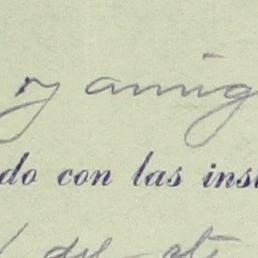 y amig
do con las inst
del